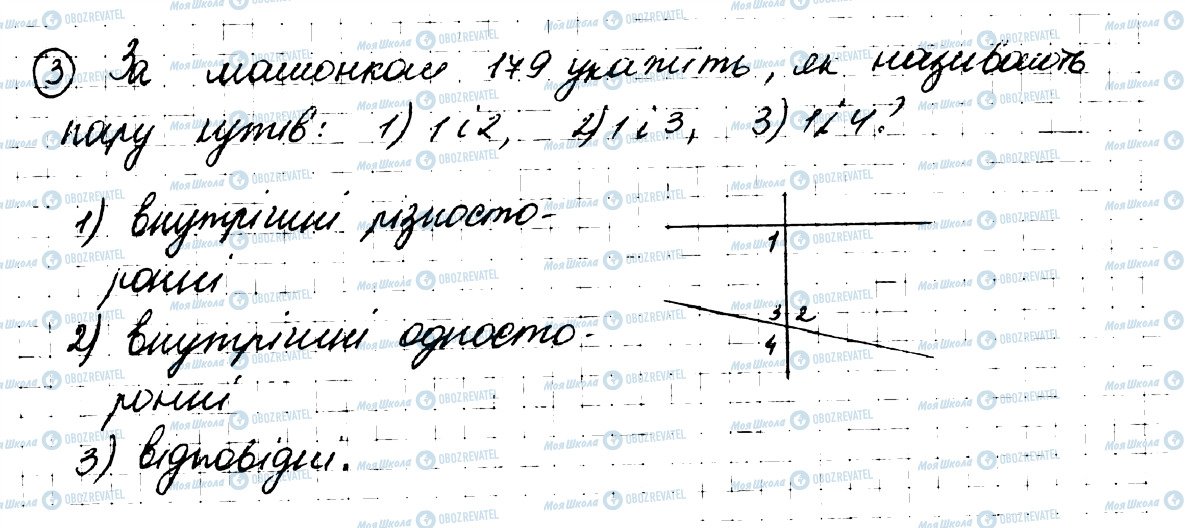 3 За малюнком 179 укажіть, як називають
пару кутів: 1) 1 і 2, 2) 1 і 3, 3) 1 і 4?
1) внутрішні різносто-
ронні
2) внутрішні односто-
ронні
3) відповідні.
1
3 2
4
МояШкола OBOZREVATEL